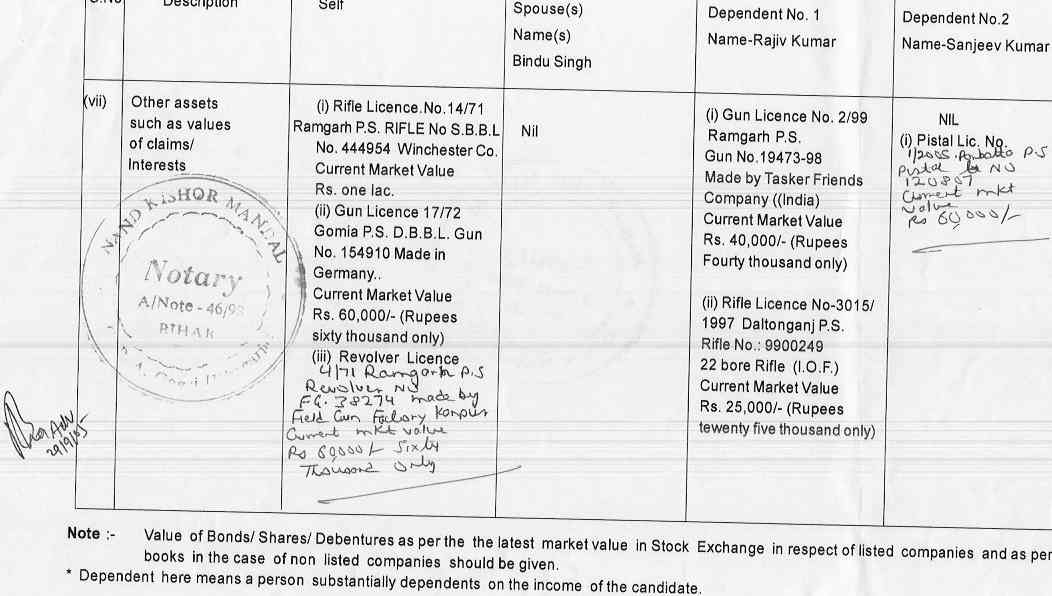 S.No
Description
Self
Spouse(s)
Name(s)
Bindu Singh
Dependent No. 1
Name-Rajiv Kumar
Dependent No.2
Name-Sanjeev Kumar
(vii)
Other assets
such as values
of claims/
Interests
(i) Rifle Licence.No.14/71
Ramgarh P.S. RIFLE No S.B.B.L
No. 444954 Winchester Co.
Current Market Value
Rs. one lac.
(ii) Gun Licence 17/72
Gomia P.S. D.B.B.L. Gun
No. 154910 Made in
Germany..
Current Market Value
Rs. 60,000/- (Rupees
sixty thousand only)
(iii) Revolver Licence
4/71 Ramgarh P.S
Revolver No
FG. 38274 made by
Field Gun Factory Kanpur
Current mkt value
Rs 60,000/- Sixty
Thousand Only
Nil
(i) Gun Licence No. 2/99
Ramgarh P.S.
Gun No.19473-98
Made by Tasker Friends
Company ((India)
Current Market Value
Rs. 40,000/- (Rupees
Fourty thousand only)
(ii) Rifle Licence No-3015/
1997 Daltonganj P.S.
Rifle No.: 9900249
22 bore Rifle (I.O.F.)
Current Market Value
Rs. 25,000/- (Rupees
tewenty five thousand only)
NIL
(i) Pistal Lic. No.
1/2005 P.S
Pistal No
120807
Current mkt
value
Rs 60,000/-
NAND KISHOR MANDAL
Notary
A/Note - 46/93
BIHAR
Note :- Value of Bonds/ Shares/ Debentures as per the the latest market value in Stock Exchange in respect of listed companies and as per
books in the case of non listed companies should be given.
* Dependent here means a person substantially dependents on the income of the candidate.